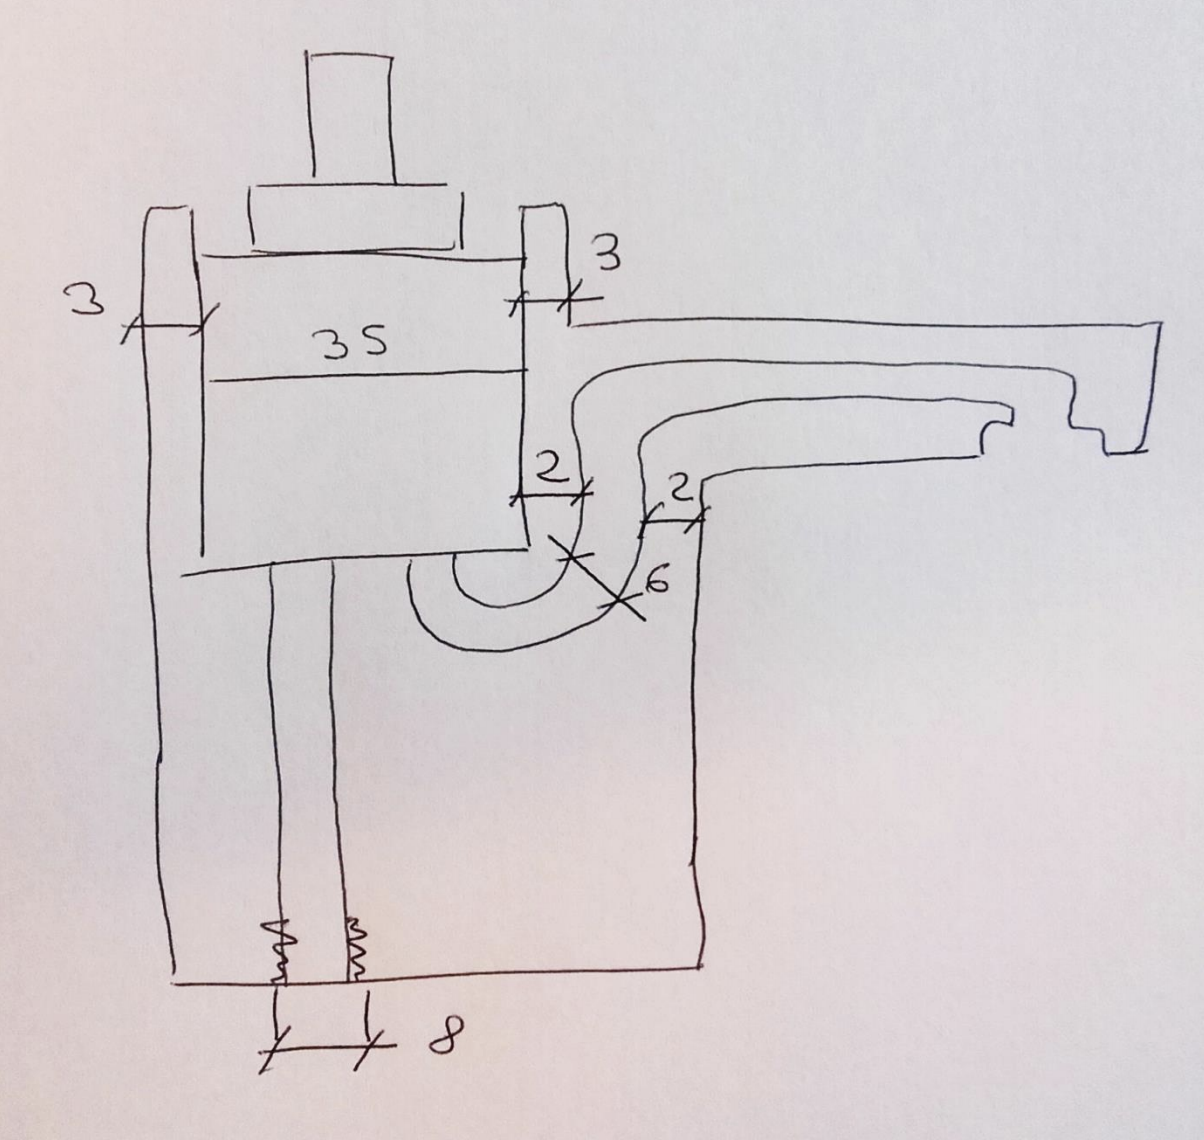 3
3
35
2
2
6
8